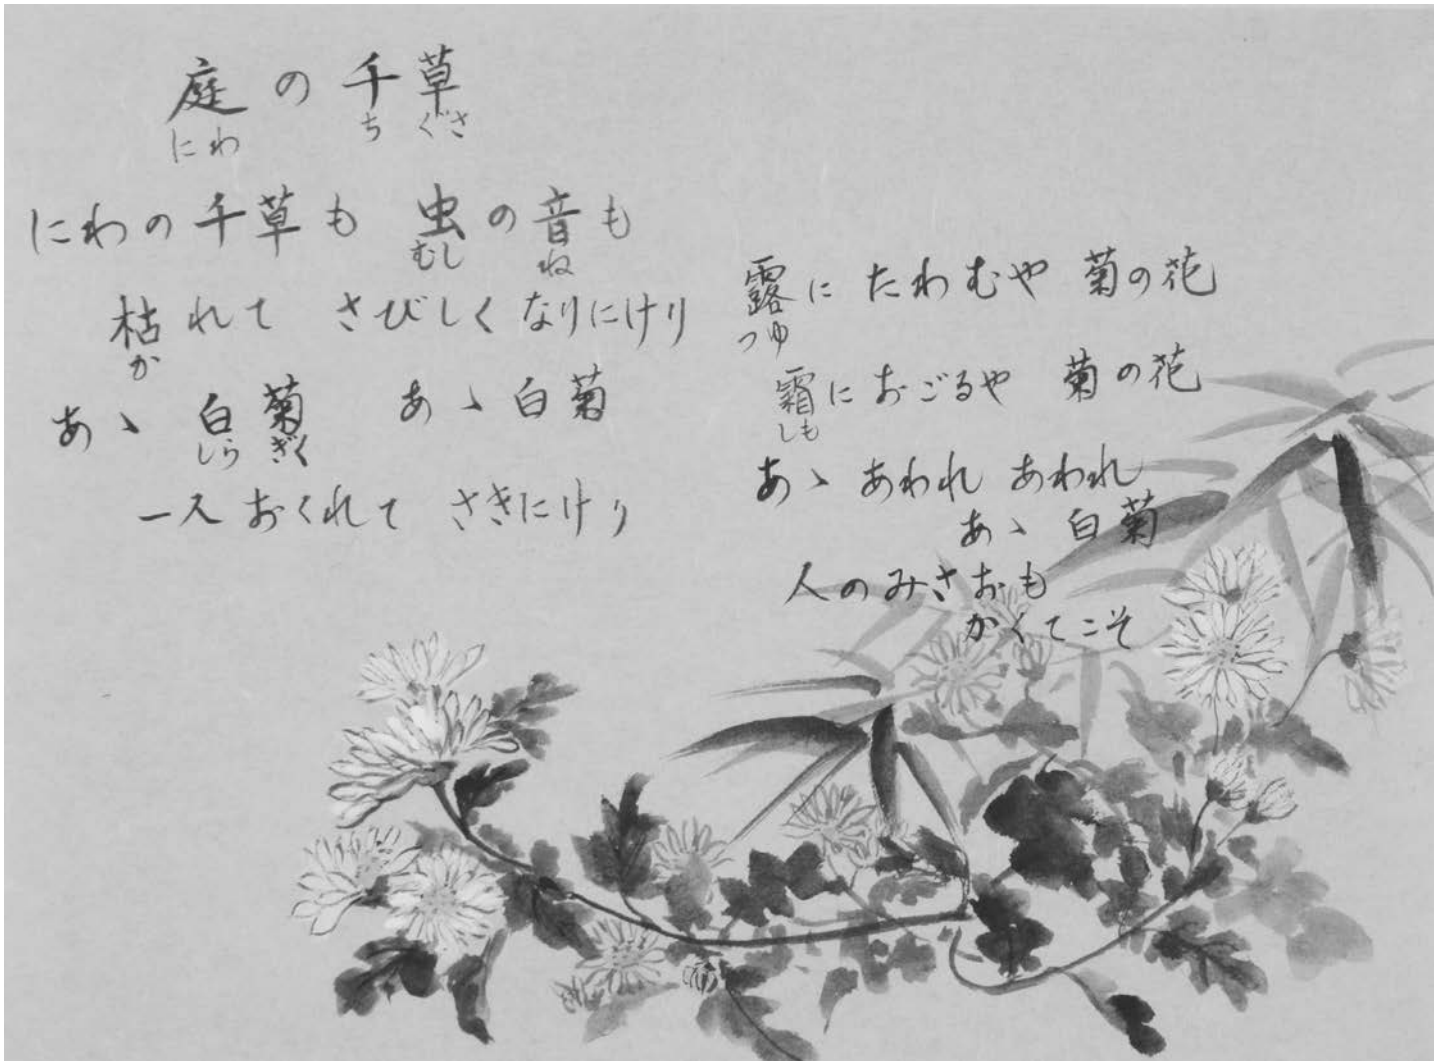 庭の千草
にわ ちぐさ
にわの千草も 虫の音も
むし ね
枯れて さびしく なりにけり
か
あゝ 白菊 あゝ 白菊
しらぎく
一人 おくれて さきにけり
露に たわむや 菊の花
つゆ
霜に おごるや 菊の花
しも
あゝ あわれ あわれ
あゝ 白菊
人のみさおも
かくてこそ